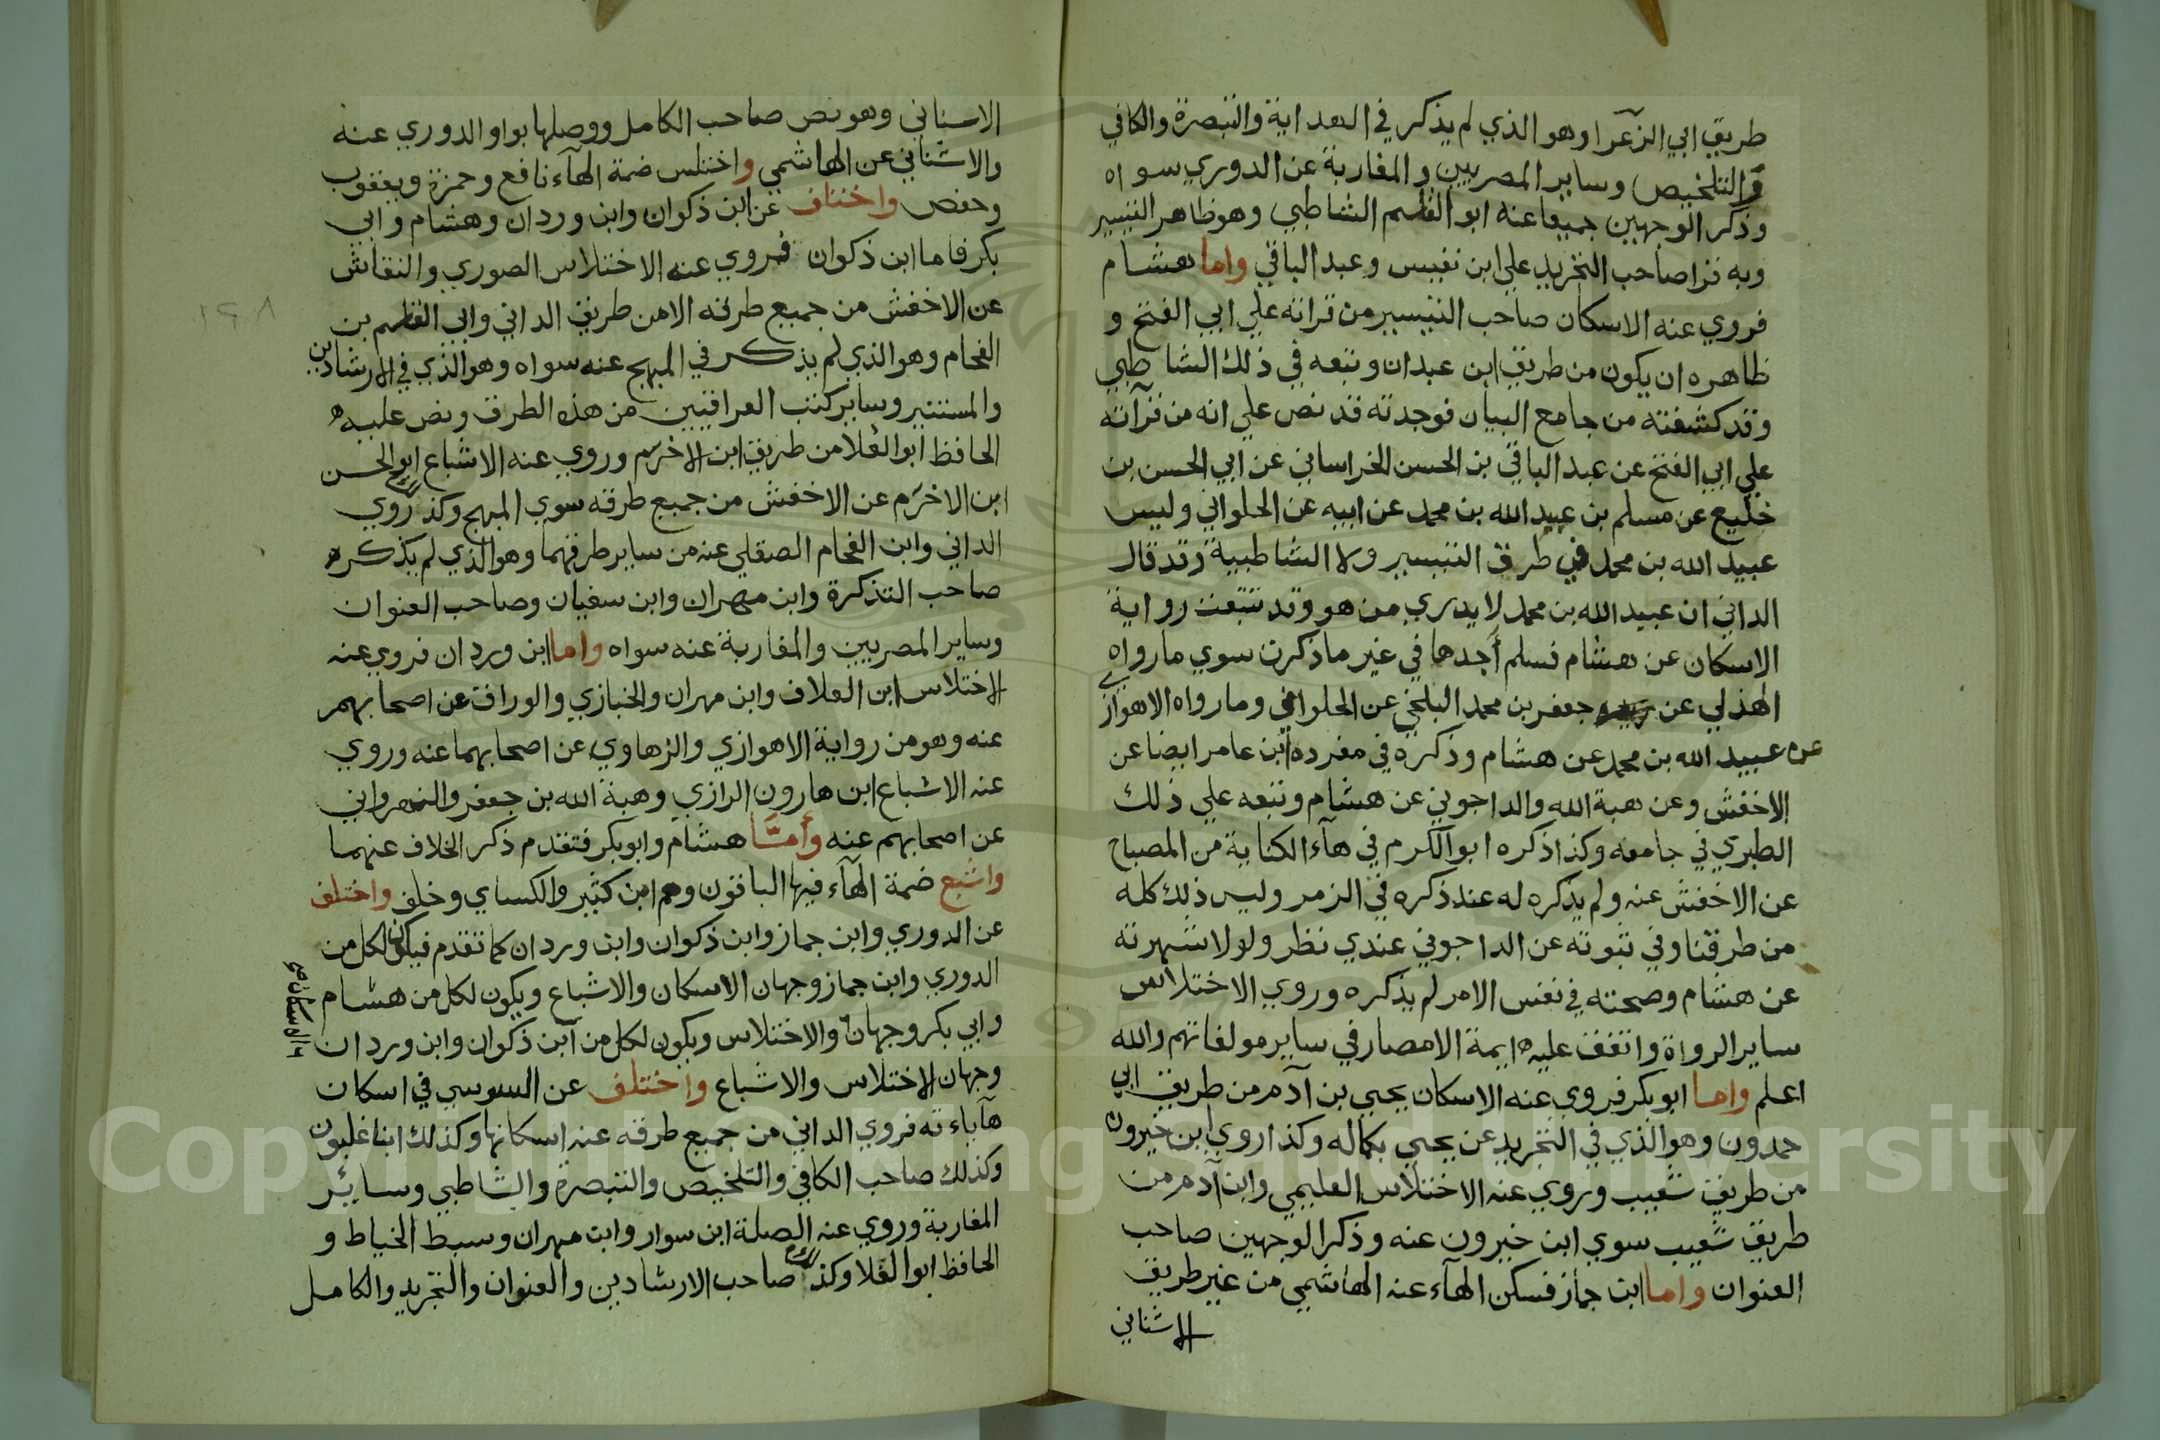 طريق ابي الزعرا وهو الذي لم يذكر في الهداية والتبصرة والكافي
والتلخيص وساير المصريين والمغاربة عن الدوري سواه
وذكر الوجهين جميعا عنه ابو القاسم الشاطبي وهو ظاهر التيسير
وبه قرا صاحب التجريد علي ابن نفيس وعبد الباقي واما هشام
فروي عنه الاسكان صاحب التيسير من قراته علي ابي الفتح و
ظاهره ان يكون من طريق ابن عبدان وتبعه في ذلك الشاطبي
وقد كشفته من جامع البيان فوجدته قد نص علي انه من قرآته
علي ابي الفتح عن عبد الباقي بن الحسن الخراساني عن ابي الحسن بن
خليع عن مسلم بن عبيد الله بن محمد عن ابيه عن الحلواني وليس
عبيد الله بن محمد في طرق التيسير ولا الشاطبية وقد قال
الداني ان عبيد الله بن محمد لا يدري من هو وقد تتبعت رواية
الاسكان عن هشام فلم أجدها في غير ما ذكرت سوي ما رواه
الهذلي عن جعفر بن محمد البلخي عن الحلواني وما رواه الاهوازي
عن عبيد الله بن محمد عن هشام وذكره في مفرده أبن عامر ايضا عن
الاخفش وعن هبة الله والداجوني عن هشام وتبعه علي ذلك
الطبري في جامعه وكذا ذكره ابو الكرم في هآء الكناية من المصباح
عن الاخفش عنه ولم يذكره له عند ذكره في الزمر وليس ذلك كله
من طرقنا وفي ثبوته عن الداجوني عندي نظر ولولا شهرته
عن هشام وصحته في نفس الامر لم يذكره وروي الاختلاس
ساير الرواة واتفق عليه ايمة الامصار في ساير مولفاتهم والله
اعلم واما ابو بكر فروي عنه الاسكان يحيي بن آدم من طريق ابي
حمدون وهو الذي في التجريد عن يحيي بكماله وكذا روي ابن خيرون
من طريق شعيب وروي عنه الاختلاس العليمي وابن آدم من
طريق شعيب سوي ابن خيرون عنه وذكر الوجهين صاحب
العنوان واما ابن جماز فسكن الهآء عنه الهاشمي من غير طريق
الاشناني
الاشناني وهو نص صاحب الكامل ووصلها بواو الدوري عنه
والاشناني عن الهاشمي واختلس ضمة الهآء نافع وحمزة ويعقوب
وحفص واختلف عن ابن ذكوان وابن وردان وهشام وابي
بكر فاما ابن ذكوان فروي عنه الاختلاس الصوري والنقاش
عن الاخفش من جميع طرقه الا من طريق الداني وابي القاسم بن
الفحام وهو الذي لم يذكر في المبهج عنه سواه وهو الذي في الارشادين
والمستنير وساير كتب العراقيين من هذه الطرق ونص عليه
الحافظ ابو العلا من طريق ابن الاخرم وروي عنه الاشباع ابو الحسن
ابن الاخرم عن الاخفش من جميع طرقه سوي المبهج وكذلك روي
الداني وابن الفحام الصقلي عنه من ساير طرقهما وهو الذي لم يذكره
صاحب التذكرة وابن مهران وابن سفيان وصاحب العنوان
وساير المصريين والمغاربة عنه سواه واما ابن وردان فروي عنه
الاختلاس ابن العلاف وابن مهران والخبازي والوراق عن اصحابهم
عنه وهو من رواية الاهوازي والرهاوي عن اصحابهما عنه وروي
عنه الاشباع ابن هارون الرازي وهبة الله بن جعفر والنهرواني
عن اصحابهم عنه وأمّا هشام وابو بكر فتقدم ذكر الخلاف عنهما
واشبع ضمة الهآء فيها الباقون وهم ابن كثير والكساي وخلف واختلف
عن الدوري وابن جماز وابن ذكوان وابن وردان كما تقدم فيكون لكل من
الدوري وابن جماز وجهان الاسكان والاشباع ويكون لكل من هشام
وابي بكر وجهان والاختلاس ويكون لكل من آبن ذكوان وابن وردان
والاسكان صح
وجهان الاختلاس والاشباع واختلف عن السوسي في اسكان
هآ ياءته فروي الداني من جميع طرقه عنه اسكانها وكذلك ابنا غلبون
وكذلك صاحب الكافي والتلخيص والتبصرة والشاطبي وسائر
المغاربة وروي عنه الصلة ابن سوار وابن مهران وسبط الخياط و
الحافظ ابو العلا وكذلك صاحب الارشادين والعنوان والتجريد والكامل
١٩٨
Copyright © King Saud University